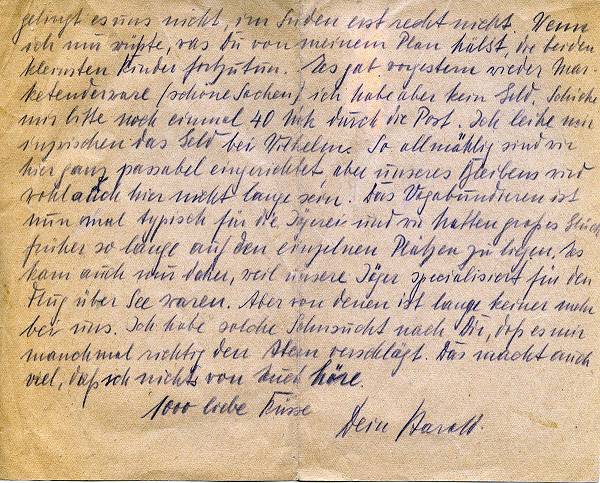 gelingt es uns nicht, im Süden erst recht nicht. Wenn
ich nur wüßte, was Du von meinem Plan hälst, die beiden
kleinsten Kinder fortzutun. Es gab vorgestern wieder Mar-
ketenderware (schöne Sachen) ich habe aber kein Geld. Schicke
mir bitte noch einmal 40 Mk durch die Post. Ich leihe mir
inzwischen das Geld bei Wilhelm. So allmählig sind wir
hier ganz passabel eingerichtet, aber unseres Bleibens wird
wohl auch hier nicht lange sein. Das Vagabundieren ist
nun mal typisch für die Jägerei und wir hatten großes Glück
früher so lange auf den einzelnen Plätzen zu liegen. Es
kam auch nur daher, weil unsere Jäger spezialisiert für den
Flug über See waren. Aber von denen ist lange keiner mehr
bei uns. Ich habe solche Sehnsucht nach Dir, daß es mir
manchmal richtig den Atem verschlägt. Das macht auch
viel, daß ich nichts von Euch höre.
1000 liebe Küsse
Dein Harald.